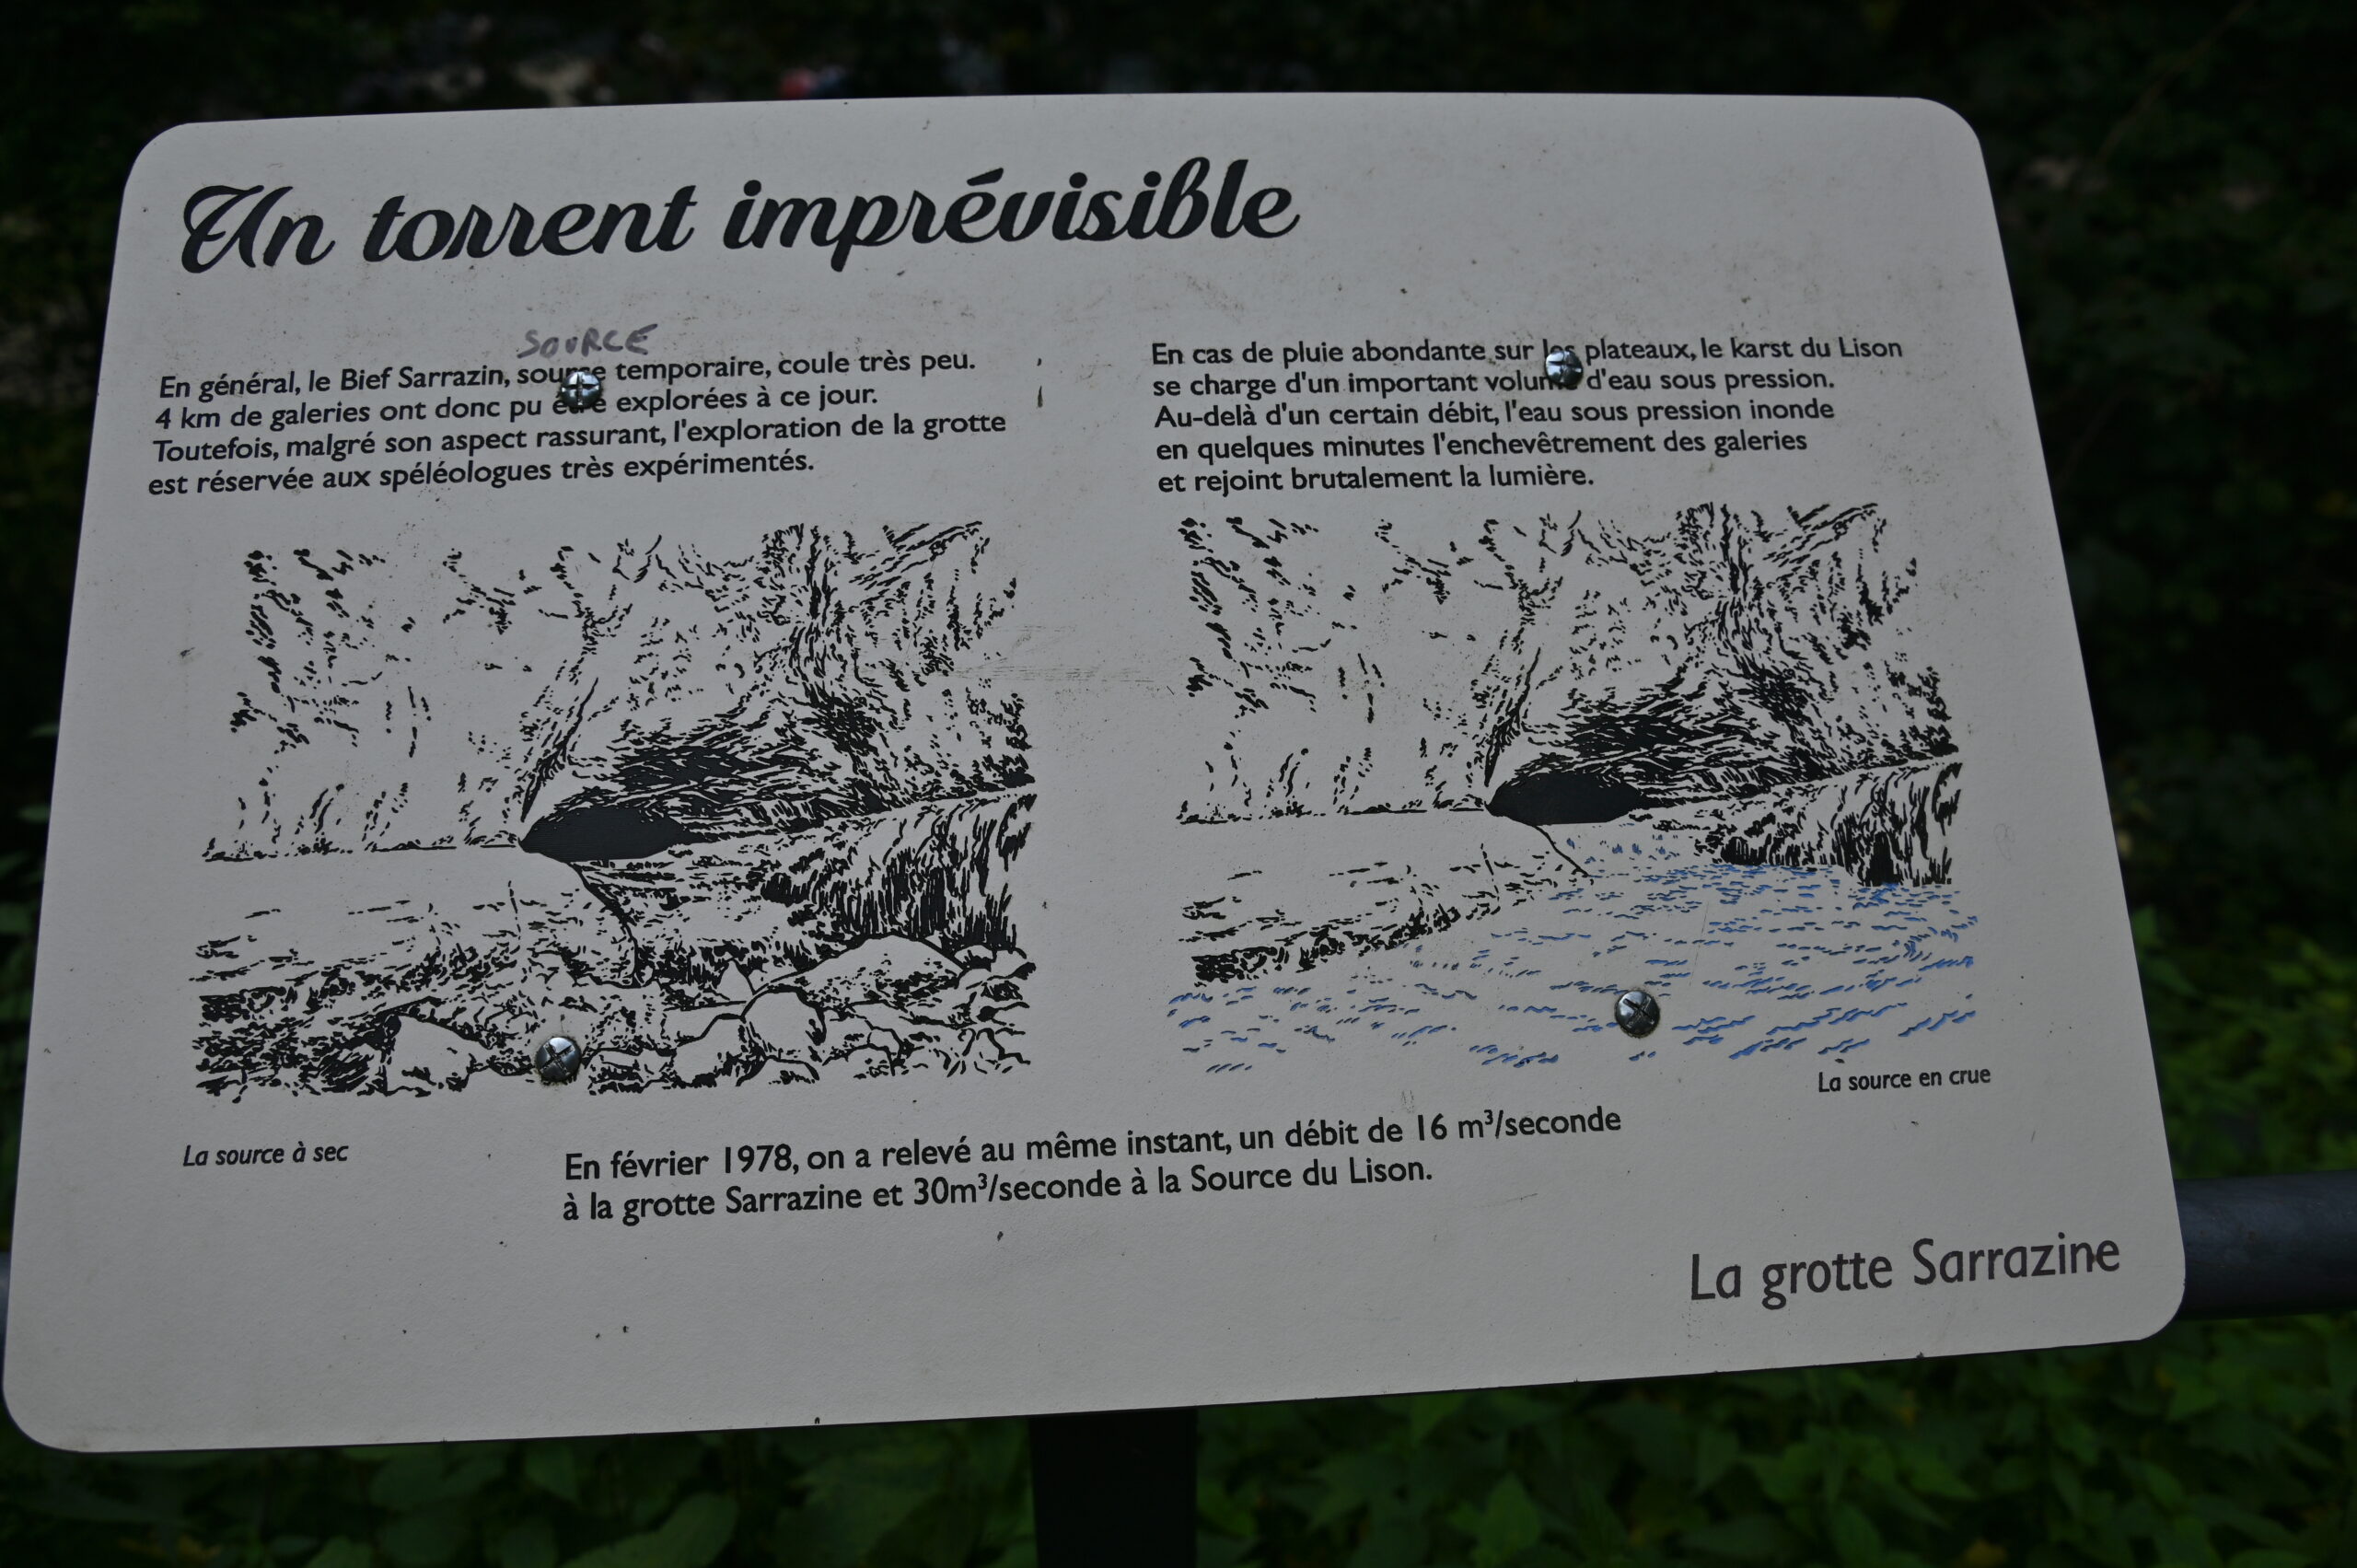 Un torrent imprévisible
SOURCE
En général, le Bief Sarrazin, source temporaire, coule très peu.
4 km de galeries ont donc pu être explorées à ce jour.
Toutefois, malgré son aspect rassurant, l'exploration de la grotte
est réservée aux spéléologues très expérimentés.
En cas de pluie abondante sur les plateaux, le karst du Lison
se charge d'un important volume d'eau sous pression.
Au-delà d'un certain débit, l'eau sous pression inonde
en quelques minutes l'enchevêtrement des galeries
et rejoint brutalement la lumière.
La source à sec
La source en crue
En février 1978, on a relevé au même instant, un débit de 16 m³/seconde
à la grotte Sarrazine et 30m³/seconde à la Source du Lison.
La grotte Sarrazine